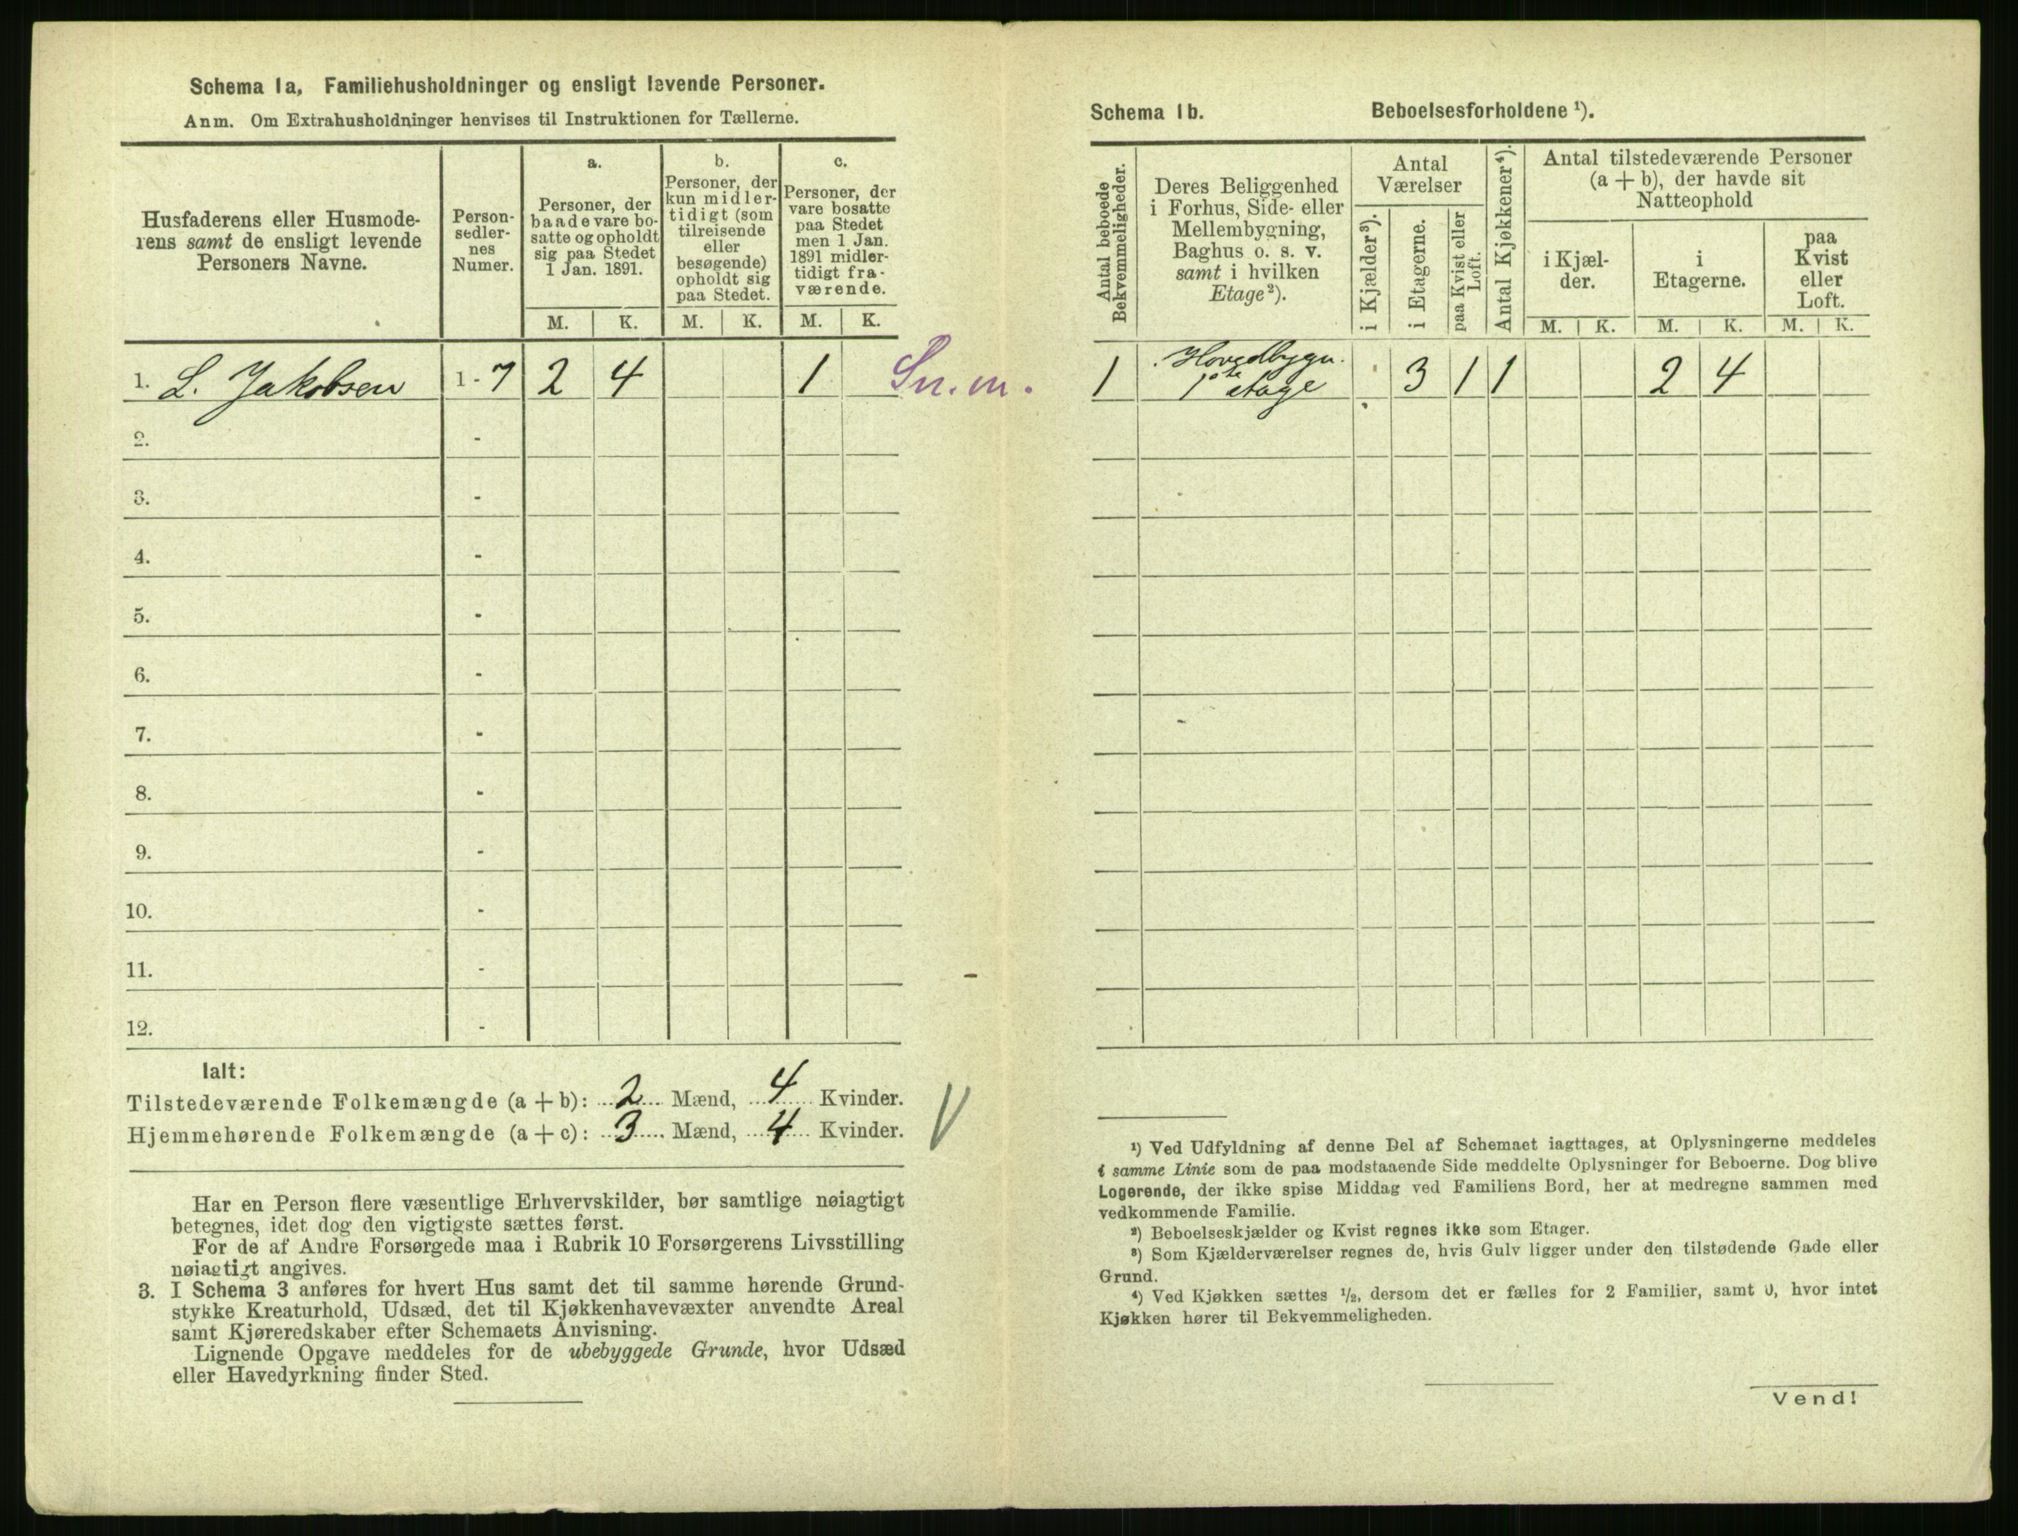 Schema 1a, Familiehusholdninger og ensligt levende Personer.
Anm. Om Extrahusholdninger henvises til Instruktionen for Tællerne.
Husfaderens eller Husmode-
rens samt de ensligt levende
Personers Navne.
Person-
sedler-
nes
Numer.
a.
Personer, der
baade vare bo-
satte og opholdt
sig paa Stedet
1 Jan. 1891.
b.
Personer, der
kun midler-
tidigt (som
tilreisende
eller
besøgende)
opholdt sig
paa Stedet.
c.
Personer, der
vare bosatte
paa Stedet
men 1 Jan.
1891 midler-
tidigt fra-
værende.
M. K. M. K. M. K.
1. L. Jakobsen 1 - 7 2 4 1 Sn. m.
2. -
3. -
4. -
5. -
6. -
7. -
8. -
9. -
10. -
11. -
12. -
Ialt:
Tilstedeværende Folkemængde (a + b): 2 Mænd, 4 Kvinder.
Hjemmehørende Folkemængde (a + c): 3 Mænd, 4 Kvinder.
Har en Person flere væsentlige Erhvervskilder, bør samtlige nøiagtigt
betegnes, idet dog den vigtigste sættes først.
For de af Andre Forsørgede maa i Rubrik 10 Forsørgerens Livsstilling
nøiagtigt angives.
3. I Schema 3 anføres for hvert Hus samt det til samme hørende Grund-
stykke Kreaturhold, Udsæd, det til Kjøkkenhavevæxter anvendte Areal
samt Kjøreredskaber efter Schemaets Anvisning.
Lignende Opgave meddeles for de ubebyggede Grunde, hvor Udsæd
eller Havedyrkning finder Sted.
Schema 1b. Beboelsesforholdene ¹).
Antal beboede
Bekvemmeligheder.
Deres Beliggenhed
i Forhus, Side- eller
Mellembygning,
Baghus o. s. v.
samt i hvilken
Etage²).
Antal
Værelser
i Kjælder³).
i Etagerne.
paa Kvist eller
Loft.
Antal Kjøkkener⁴).
Antal tilstedeværende Personer
(a + b), der havde sit
Natteophold
i Kjæl-
der.
i
Etagerne.
paa
Kvist
eller
Loft.
M. K. M. K. M. K.
1 Hovedbygn. 1ste etage 3 1 1 2 4
¹) Ved Udfyldning af denne Del af Schemaet iagttages, at Oplysningerne meddeles
i samme Linie som de paa modstaaende Side meddelte Oplysninger for Beboerne. Dog blive
Logerende, der ikke spise Middag ved Familiens Bord, her at medregne sammen med
vedkommende Familie.
²) Beboelseskjælder og Kvist regnes ikke som Etager.
³) Som Kjælderværelser regnes de, hvis Gulv ligger under den tilstødende Gade eller
Grund.
⁴) Ved Kjøkken sættes ½, dersom det er fælles for 2 Familier, samt 0, hvor intet
Kjøkken hører til Bekvemmeligheden.
Vend!